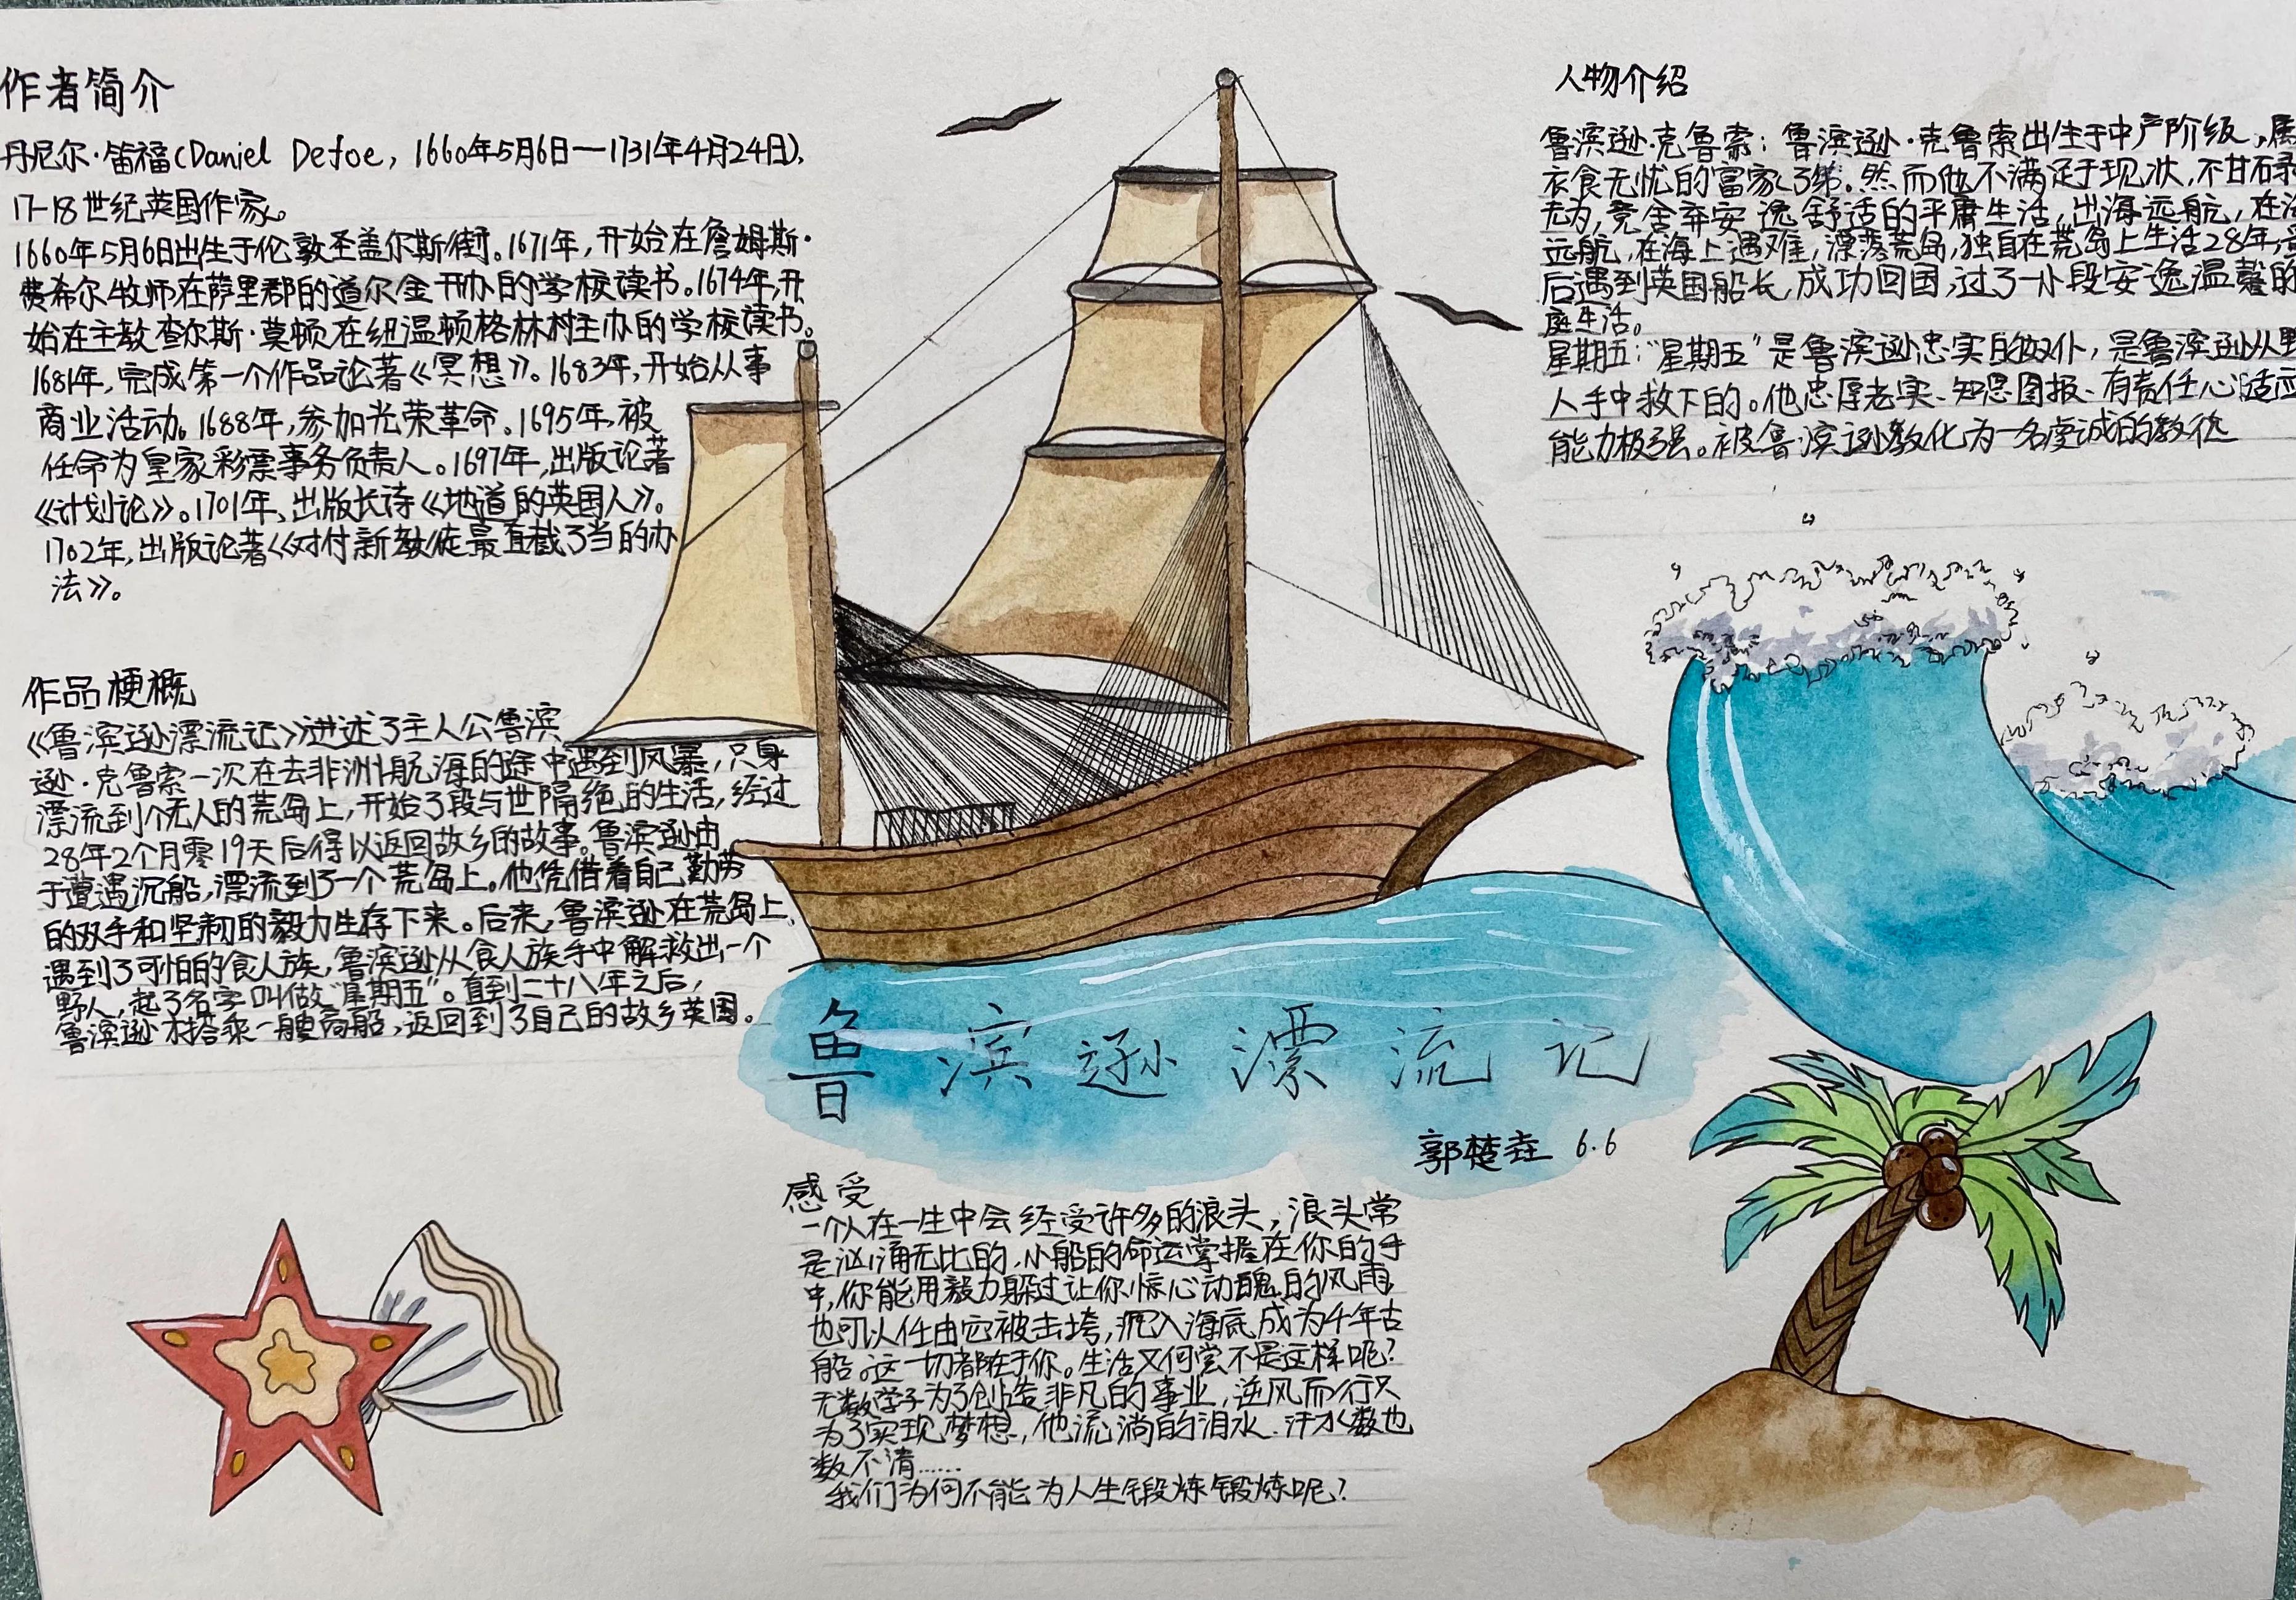 作者简介
丹尼尔·笛福(Daniel Defoe, 1660年5月6日—1731年4月24日),
17-18世纪英国作家。
1660年5月6日出生于伦敦圣盖尔斯街。1671年,开始在詹姆斯·
费希尔牧师在萨里郡的道尔金开办的学校读书。1674年,开
始在主教查尔斯·莫顿在纽温顿格林村主办的学校读书。
1681年,完成第一个作品论著《冥想》。1683年,开始从事
商业活动。1688年,参加光荣革命。1695年,被
任命为皇家彩票事务负责人。1697年,出版论著
《计划论》。1701年,出版长诗《地道的英国人》。
1702年,出版论著《对付新教徒最直截了当的办
法》。
作品梗概
《鲁滨逊漂流记》讲述了主人公鲁滨
逊·克鲁索一次在去非洲航海的途中遇到风暴,只身
漂流到个无人的荒岛上,开始了段与世隔绝的生活,经过
28年2个月零19天后得以返回故乡的故事。鲁滨逊由
于遭遇沉船,漂流到了一个荒岛上。他凭借着自己勤劳
的双手和坚韧的毅力生存下来。后来,鲁滨逊在荒岛上
遇到了可怕的食人族,鲁滨逊从食人族手中解救出一个
野人,起了名字叫做"星期五"。直到二十八年之后,
鲁滨逊才搭乘一艘商船,返回到了自己的故乡英国。
人物介绍
鲁滨逊·克鲁索:鲁滨逊·克鲁索出生于中产阶级,属
衣食无忧的富家子弟。然而他不满足于现状,不甘碌
无为,竟舍弃安逸舒适的平庸生活,出海远航,在
远航,在海上遇难,漂落荒岛,独自在荒岛上生活28年,
后遇到英国船长,成功回国,过了一小段安逸温馨的
庭生活。
星期五:"星期五"是鲁滨逊忠实的奴仆,是鲁滨逊从野
人手中救下的。他忠厚老实、知恩图报、有责任心,适应
能力极强。被鲁滨逊教化为一名虔诚的教徒
鲁滨逊漂流记
郭楚垚 6.6
感受
一个人在一生中会经受许多的浪头,浪头常
是汹涌无比的,小船的命运掌握在你的手
中,你能用毅力躲过让你惊心动魄的风雨
也可以任由它被击垮,沉入海底成为千年古
船。这一切都在于你。生活又何尝不是这样呢?
无数学子为了创造非凡的事业,逆风而行只
为了实现梦想,他流淌的泪水、汗水数也
数不清……
我们为何不能为人生锻炼锻炼呢?